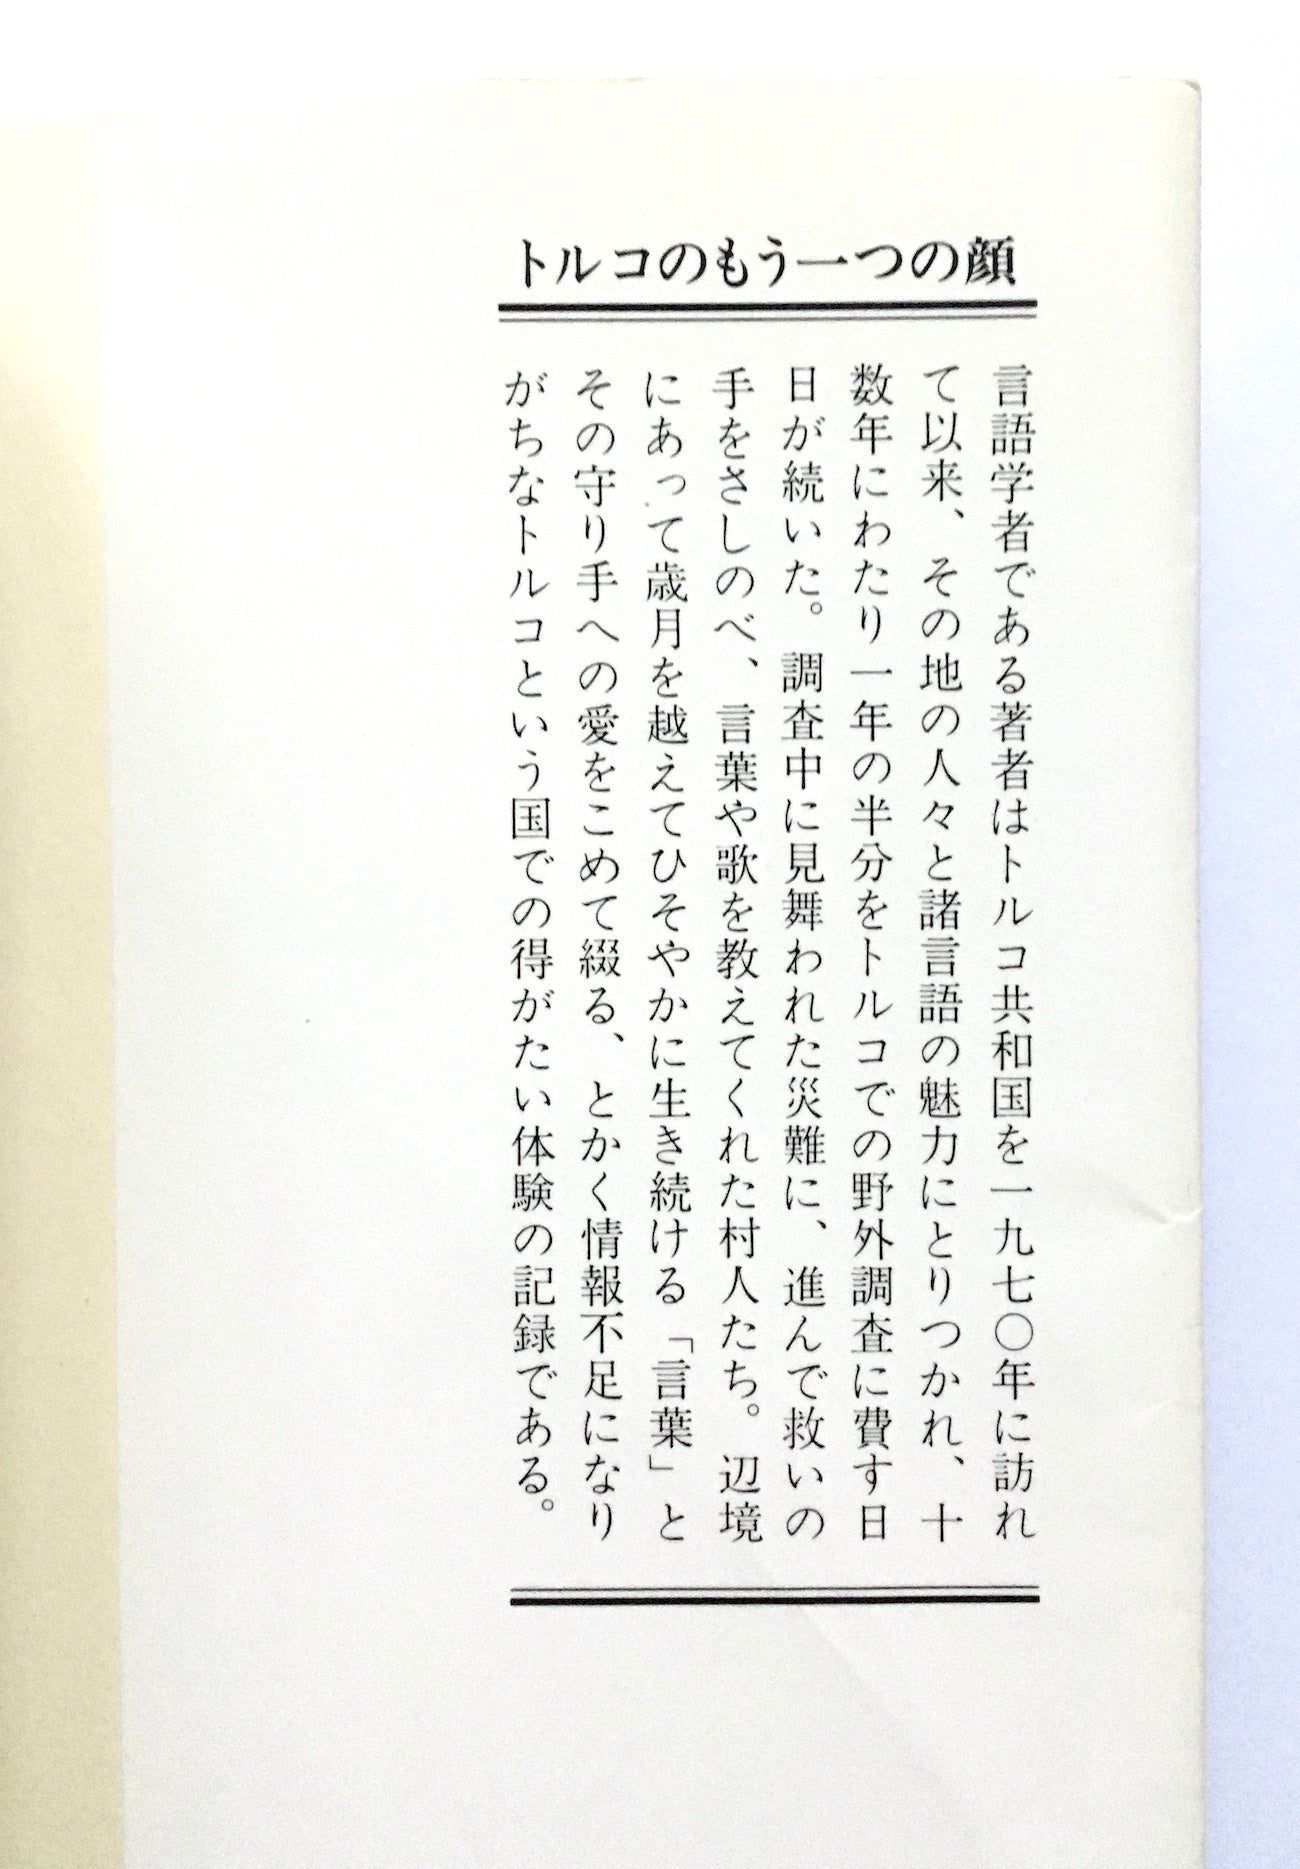 トルコのもう一つの顔
言語学者である著者はトルコ共和国を一九七〇年に訪れ
て以来、その地の人々と諸言語の魅力にとりつかれ、十
数年にわたり一年の半分をトルコでの野外調査に費す日
日が続いた。調査中に見舞われた災難に、進んで救いの
手をさしのべ、言葉や歌を教えてくれた村人たち。辺境
にあって歳月を越えてひそやかに生き続ける「言葉」と
その守り手への愛をこめて綴る、とかく情報不足になり
がちなトルコという国での得がたい体験の記録である。